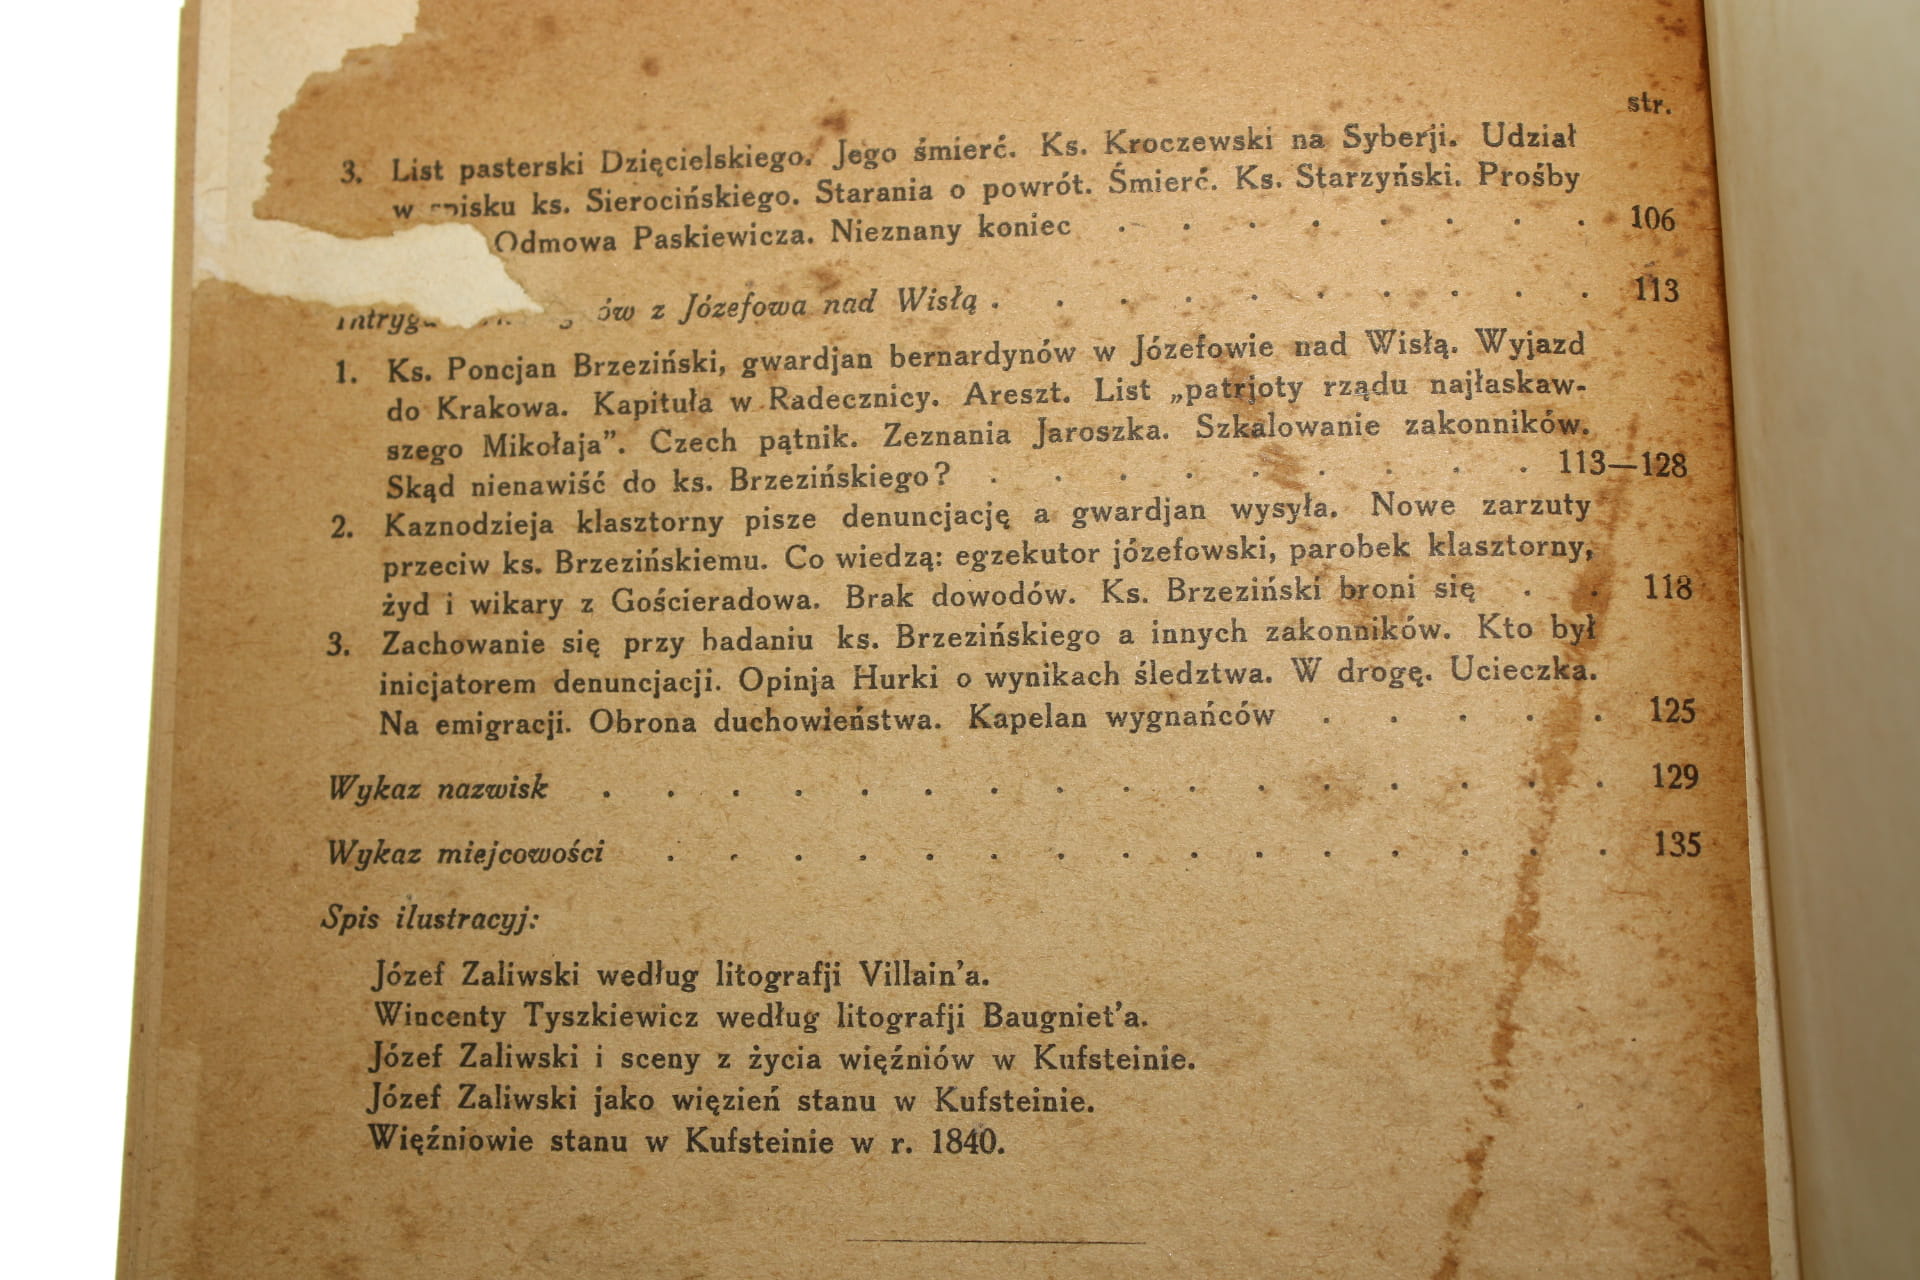 str.
3. List pasterski Dzięcielskiego. Jego śmierć. Ks. Kroczewski na Syberji. Udział
w spisku ks. Sierocińskiego. Starania o powrót. Śmierć. Ks. Starzyński. Prośby
Odmowa Paskiewicza. Nieznany koniec . . . . . . . . 106
z Józefowa nad Wisłą . . . . . . . . . . 113
1. Ks. Poncjan Brzeziński, gwardjan bernardynów w Józefowie nad Wisłą. Wyjazd
do Krakowa. Kapituła w Radecznicy. Areszt. List „patrjoty rządu najłaskaw-
szego Mikołaja”. Czech pątnik. Zeznania Jaroszka. Szkalowanie zakonników.
Skąd nienawiść do ks. Brzezińskiego? . . . . . . . . . 113—128
2. Kaznodzieja klasztorny pisze denuncjację a gwardjan wysyła. Nowe zarzuty
przeciw ks. Brzezińskiemu. Co wiedzą: egzekutor józefowski, parobek klasztorny,
żyd i wikary z Gościeradowa. Brak dowodów. Ks. Brzeziński broni się . . 118
3. Zachowanie się przy badaniu ks. Brzezińskiego a innych zakonników. Kto był
inicjatorem denuncjacji. Opinja Hurki o wynikach śledztwa. W drogę. Ucieczka.
Na emigracji. Obrona duchowieństwa. Kapelan wygnańców . . . . . 125
Wykaz nazwisk . . . . . . . . . . . . . . . . 129
Wykaz miejcowości . . . . . . . . . . . . . . . 135
Spis ilustracyj:
Józef Zaliwski według litografji Villain’a.
Wincenty Tyszkiewicz według litografji Baugniet’a.
Józef Zaliwski i sceny z życia więźniów w Kufsteinie.
Józef Zaliwski jako więzień stanu w Kufsteinie.
Więźniowie stanu w Kufsteinie w r. 1840.